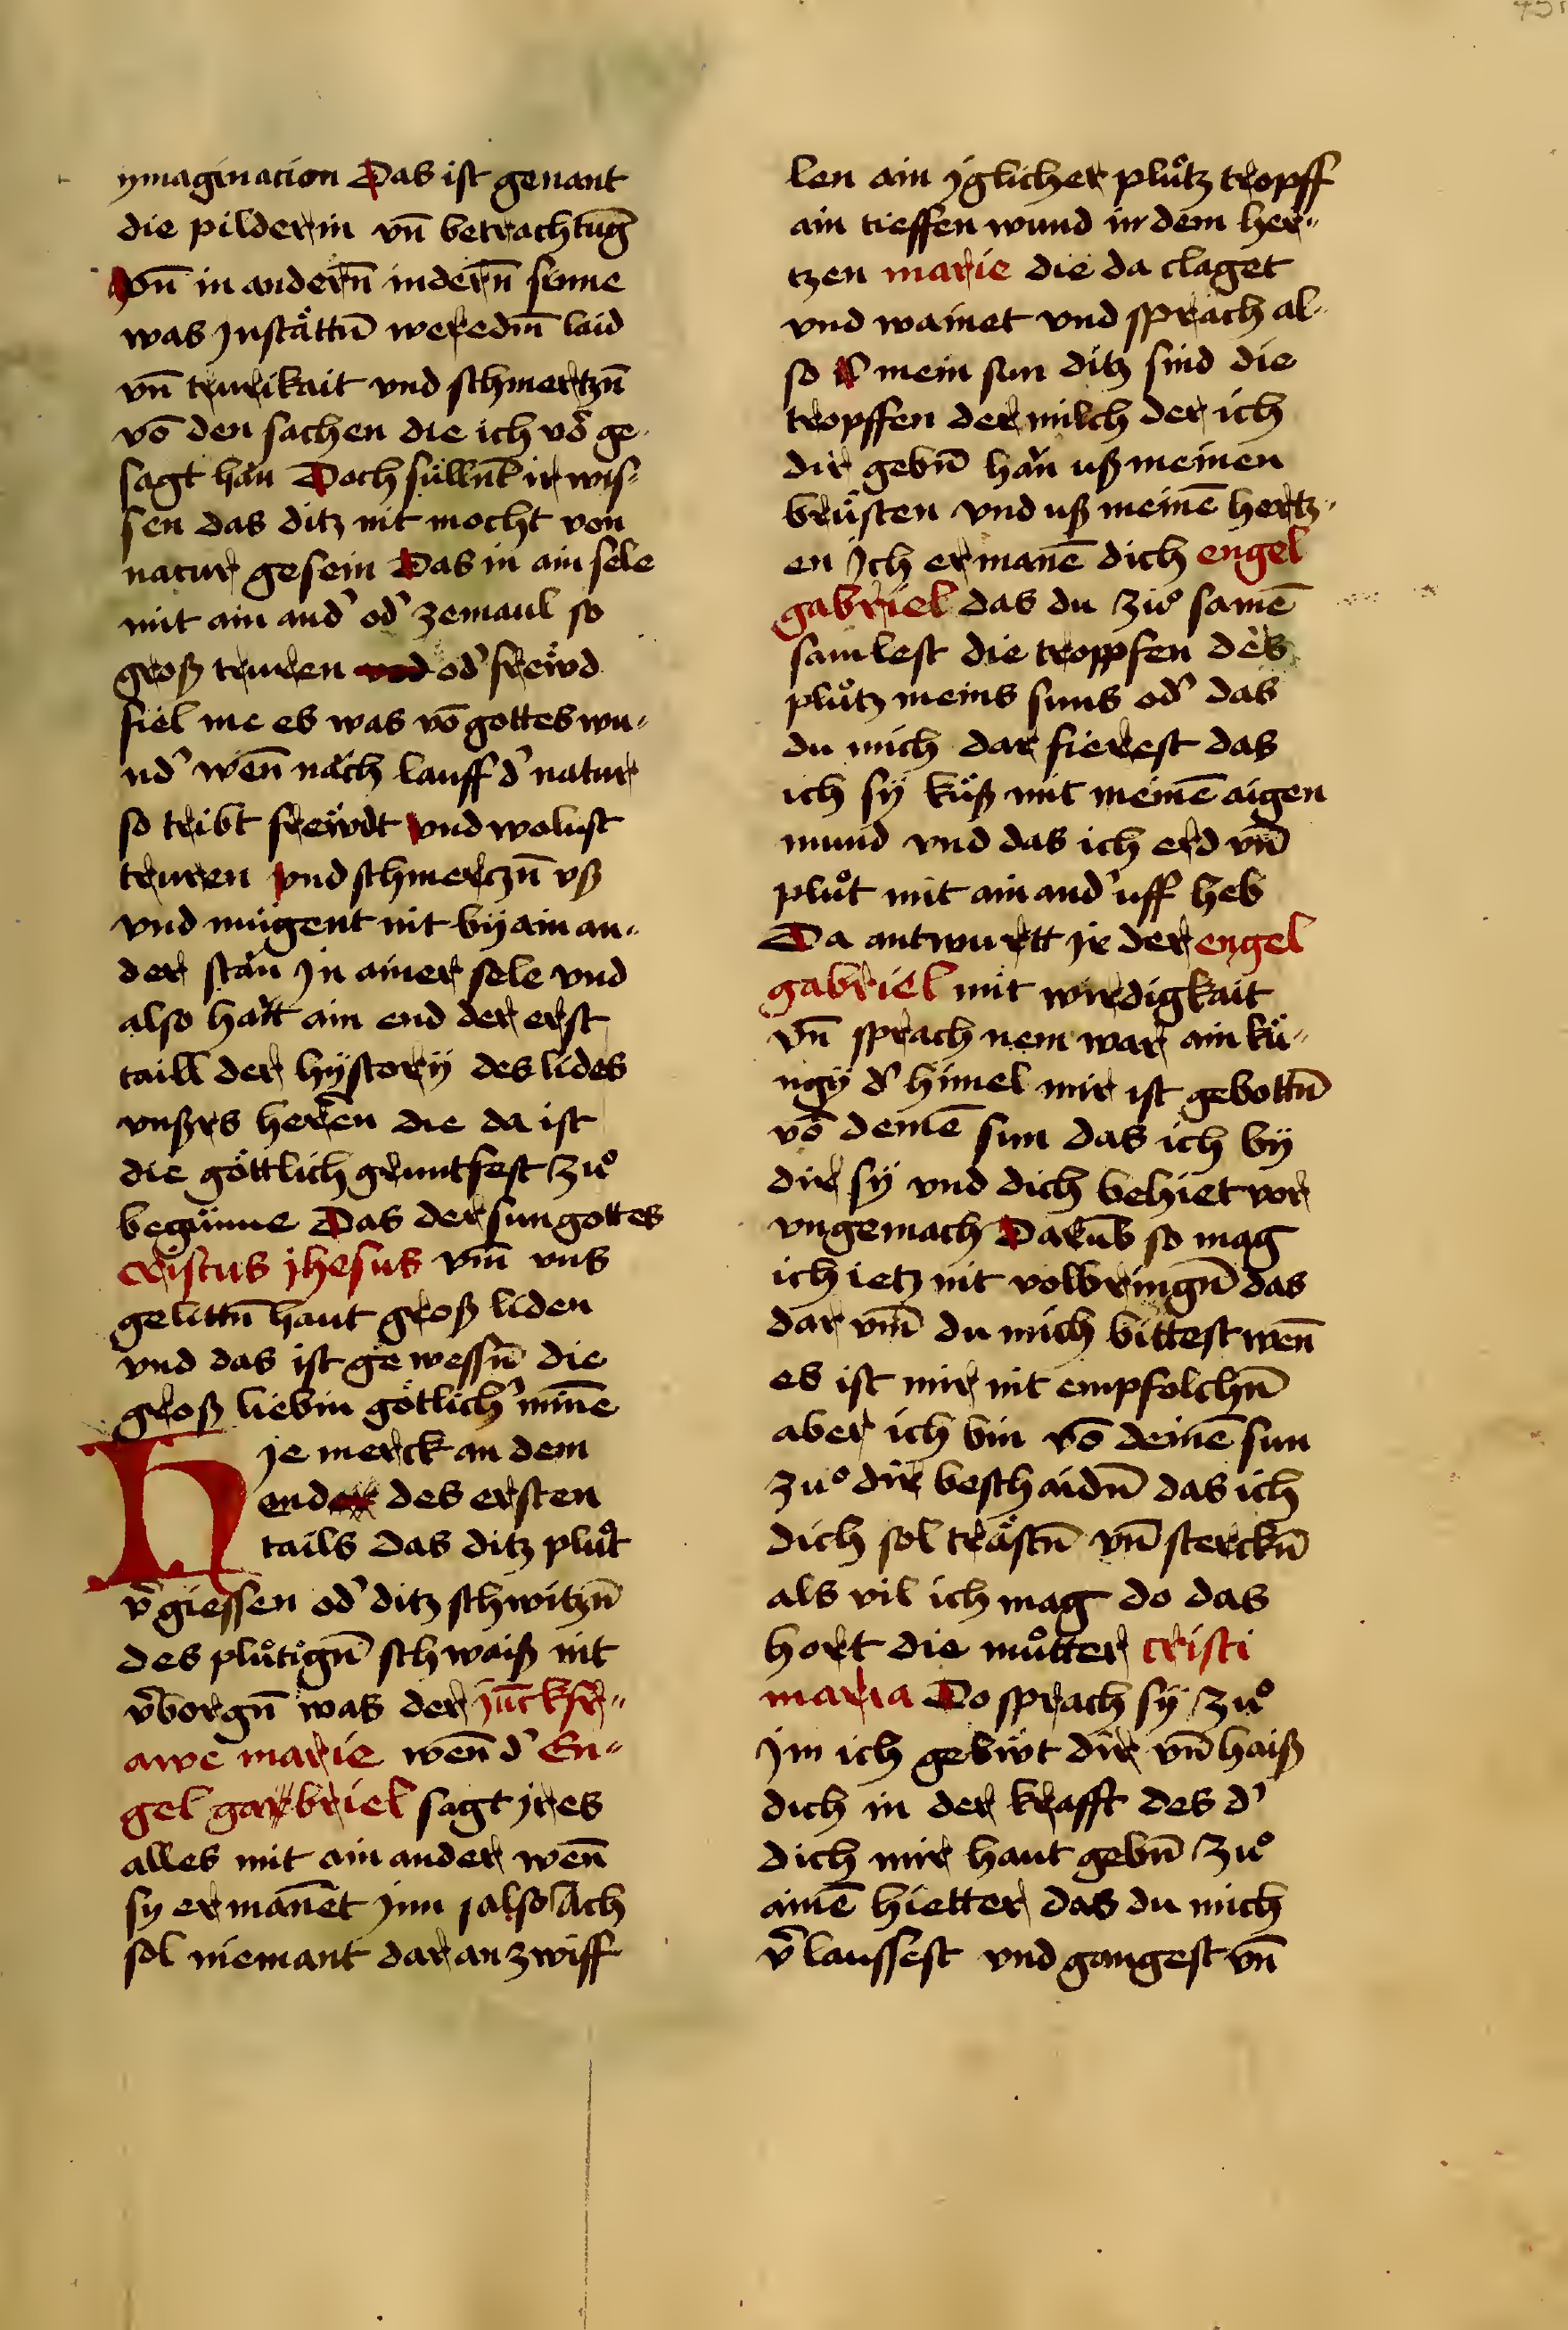 ymaginacion Das ist genant
die pilderin vn̄ betrachtūg
Vn̄ in andern̄ indern̄ sinne
was Jnstättn̄ weredin̄ laid
vn̄ trurikait vnd schmertzn̄
vō den sachen die ich vor̄ ge-
sagt han Doch süllnt ir wis-
sen das ditz nit mocht von
natur gesein Das in ain sele
mit ain and' od' zemaul so
groß truren od' frewd
fiel me es was vō gottes wu-
nd' wen̄ nach lauff d' natur
so tribt frewdt vnd wolust
truren vnd schmerczn̄ vß
vnd mügent nit by ain an-
der stan Jn ainer sele vnd
also hatt ain end der erst
taill der hystory des lides
vnßrs heren die da ist
die göttlich gruntfest zuͦ
begünne Das der sun gottes
cristus jhesus vm̄ vns
gelittn̄ haut groß liden
vnd das ist gewessn̄ die
groß liebin götlich' min̄e
Hje merck an dem
end des ersten
tails das ditz pluͦt
v'giessen od' ditz schwitzn̄
des pluͦtign̄ schwaiß nit
v'borgn̄ was der jūckfr-
awe marie wen̄ d' En-
gel gabriel sagt jr es
alles mit ain ander wen̄
sy erman̄et jnn also Ach
sol niemant dar an zwiff
len ain jglicher pluͦtz tropff
ain tieffen wund in dem her-
tzen marie die da claget
vnd wainet vnd sprach al-
so O mein sun ditz sind die
tropffen der milch der ich
dir gebn̄ han uß meinen
brüsten vnd uß meinē hertz-
en Jch ermanē dich engel
gabriel das du zuͦ samē
samlest die troppfen des
pluͦtz meins suns od' das
du mich dar fierest das
ich sy küß mit meinē aigen
mund vnd das ich erd vn̄
pluͦt mit ain and' uff heb
Da antwurtt jr der engel
gabriel mit wirdigkait
vn̄ sprach nem war ain kü-
ngy d' himel mir ist gebottn̄
vō deinē sun das ich by
dir sy vnd dich behiet vor
vngemach Darūb so mag
ich ietz nit volbringn̄ das
dar vm̄ du mich bittest wen̄
es ist mir nit empfolchn̄
aber ich bin vō deinē sun
zuͦ dir beschaidn̄ das ich
dich sol trästn̄ vn̄ sterckn̄
als vil ich mag do das
hort die muͦtter cristi
maria Do sprach sy zuͦ
jm ich gebüt dir vn̄ haiß
dich in der krafft des d'
dich mir haut gebn̄ zuͦ
ainē hietter das du mich
v'laussest vnd gangest vn̄